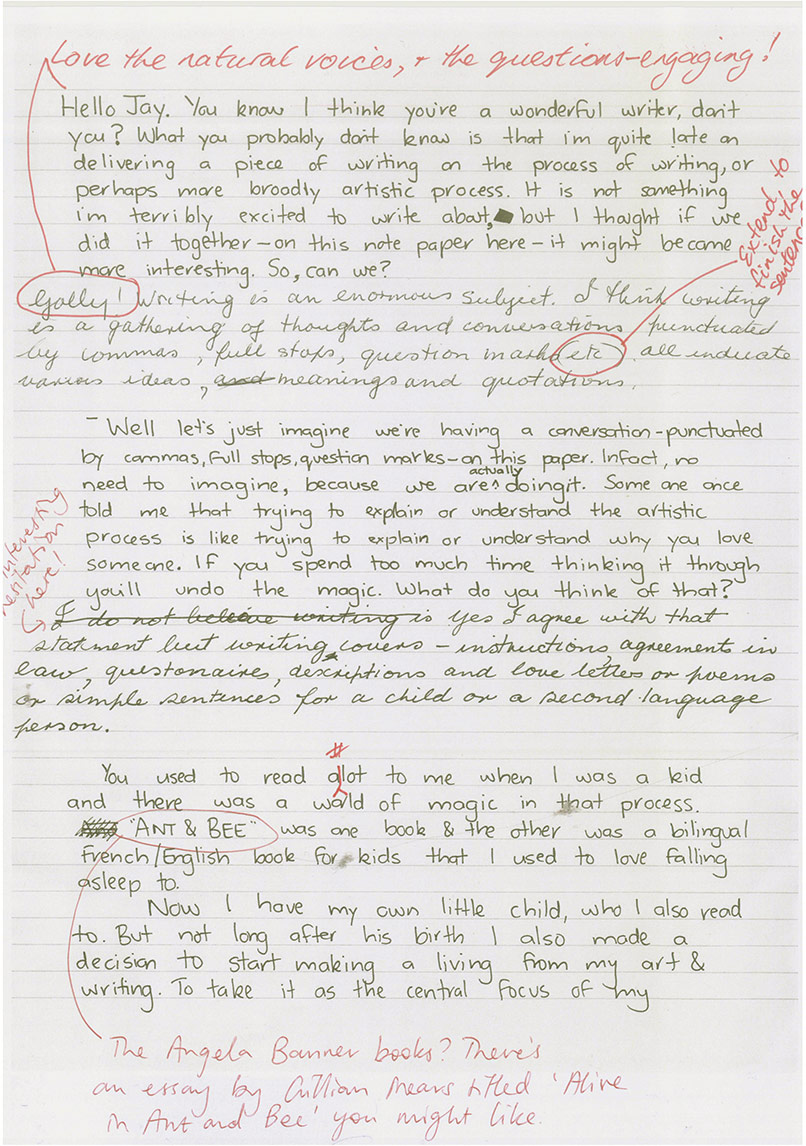 Love the natural voices, + the questions-engaging!
Hello Jay. You know I think you're a wonderful writer, don't
you? What you probably don't know is that i'm quite late on
delivering a piece of writing on the process of writing, or
perhaps more broadly artistic process. It is not something
i'm terribly excited to write about, but I thought if we
did it together - on this note paper here - it might become
more interesting. So, can we?
Extend to
finish the
sentence
Golly! Writing is an enormous subject. I think writing
is a gathering of thoughts and conversations punctuated
by commas, full stops, question marks etc. all indicate
various ideas, and meanings and quotations.
- Well let's just imagine we're having a conversation - punctuated
by commas, full stops, question marks - on this paper. Infact, no
need to imagine, because we are actually doingit. Some one once
told me that trying to explain or understand the artistic
process is like trying to explain or understand why you love
someone. If you spend too much time thinking it through
you'll undo the magic. What do you think of that?
interesting
hesitation
here!
I do not beleive writing is Yes I agree with that
statment but writing covers - instructions, agreements in
law, questonaires, descriptions and love letters or poems
or simple sentences for a child or a second language
person.
#
You used to read alot to me when I was a kid
and there was a world of magic in that process.
"ANT & BEE" was one book & the other was a bilingual
French/English book for kids that I used to love falling
asleep to.
Now I have my own little child, who I also read
to. But not long after his birth I also made a
decision to start making a living from my art &
writing. To take it as the central focus of my
The Angela Banner books? There's
an essay by Gillian Mears titled 'Alive
in Ant and Bee' you might like.